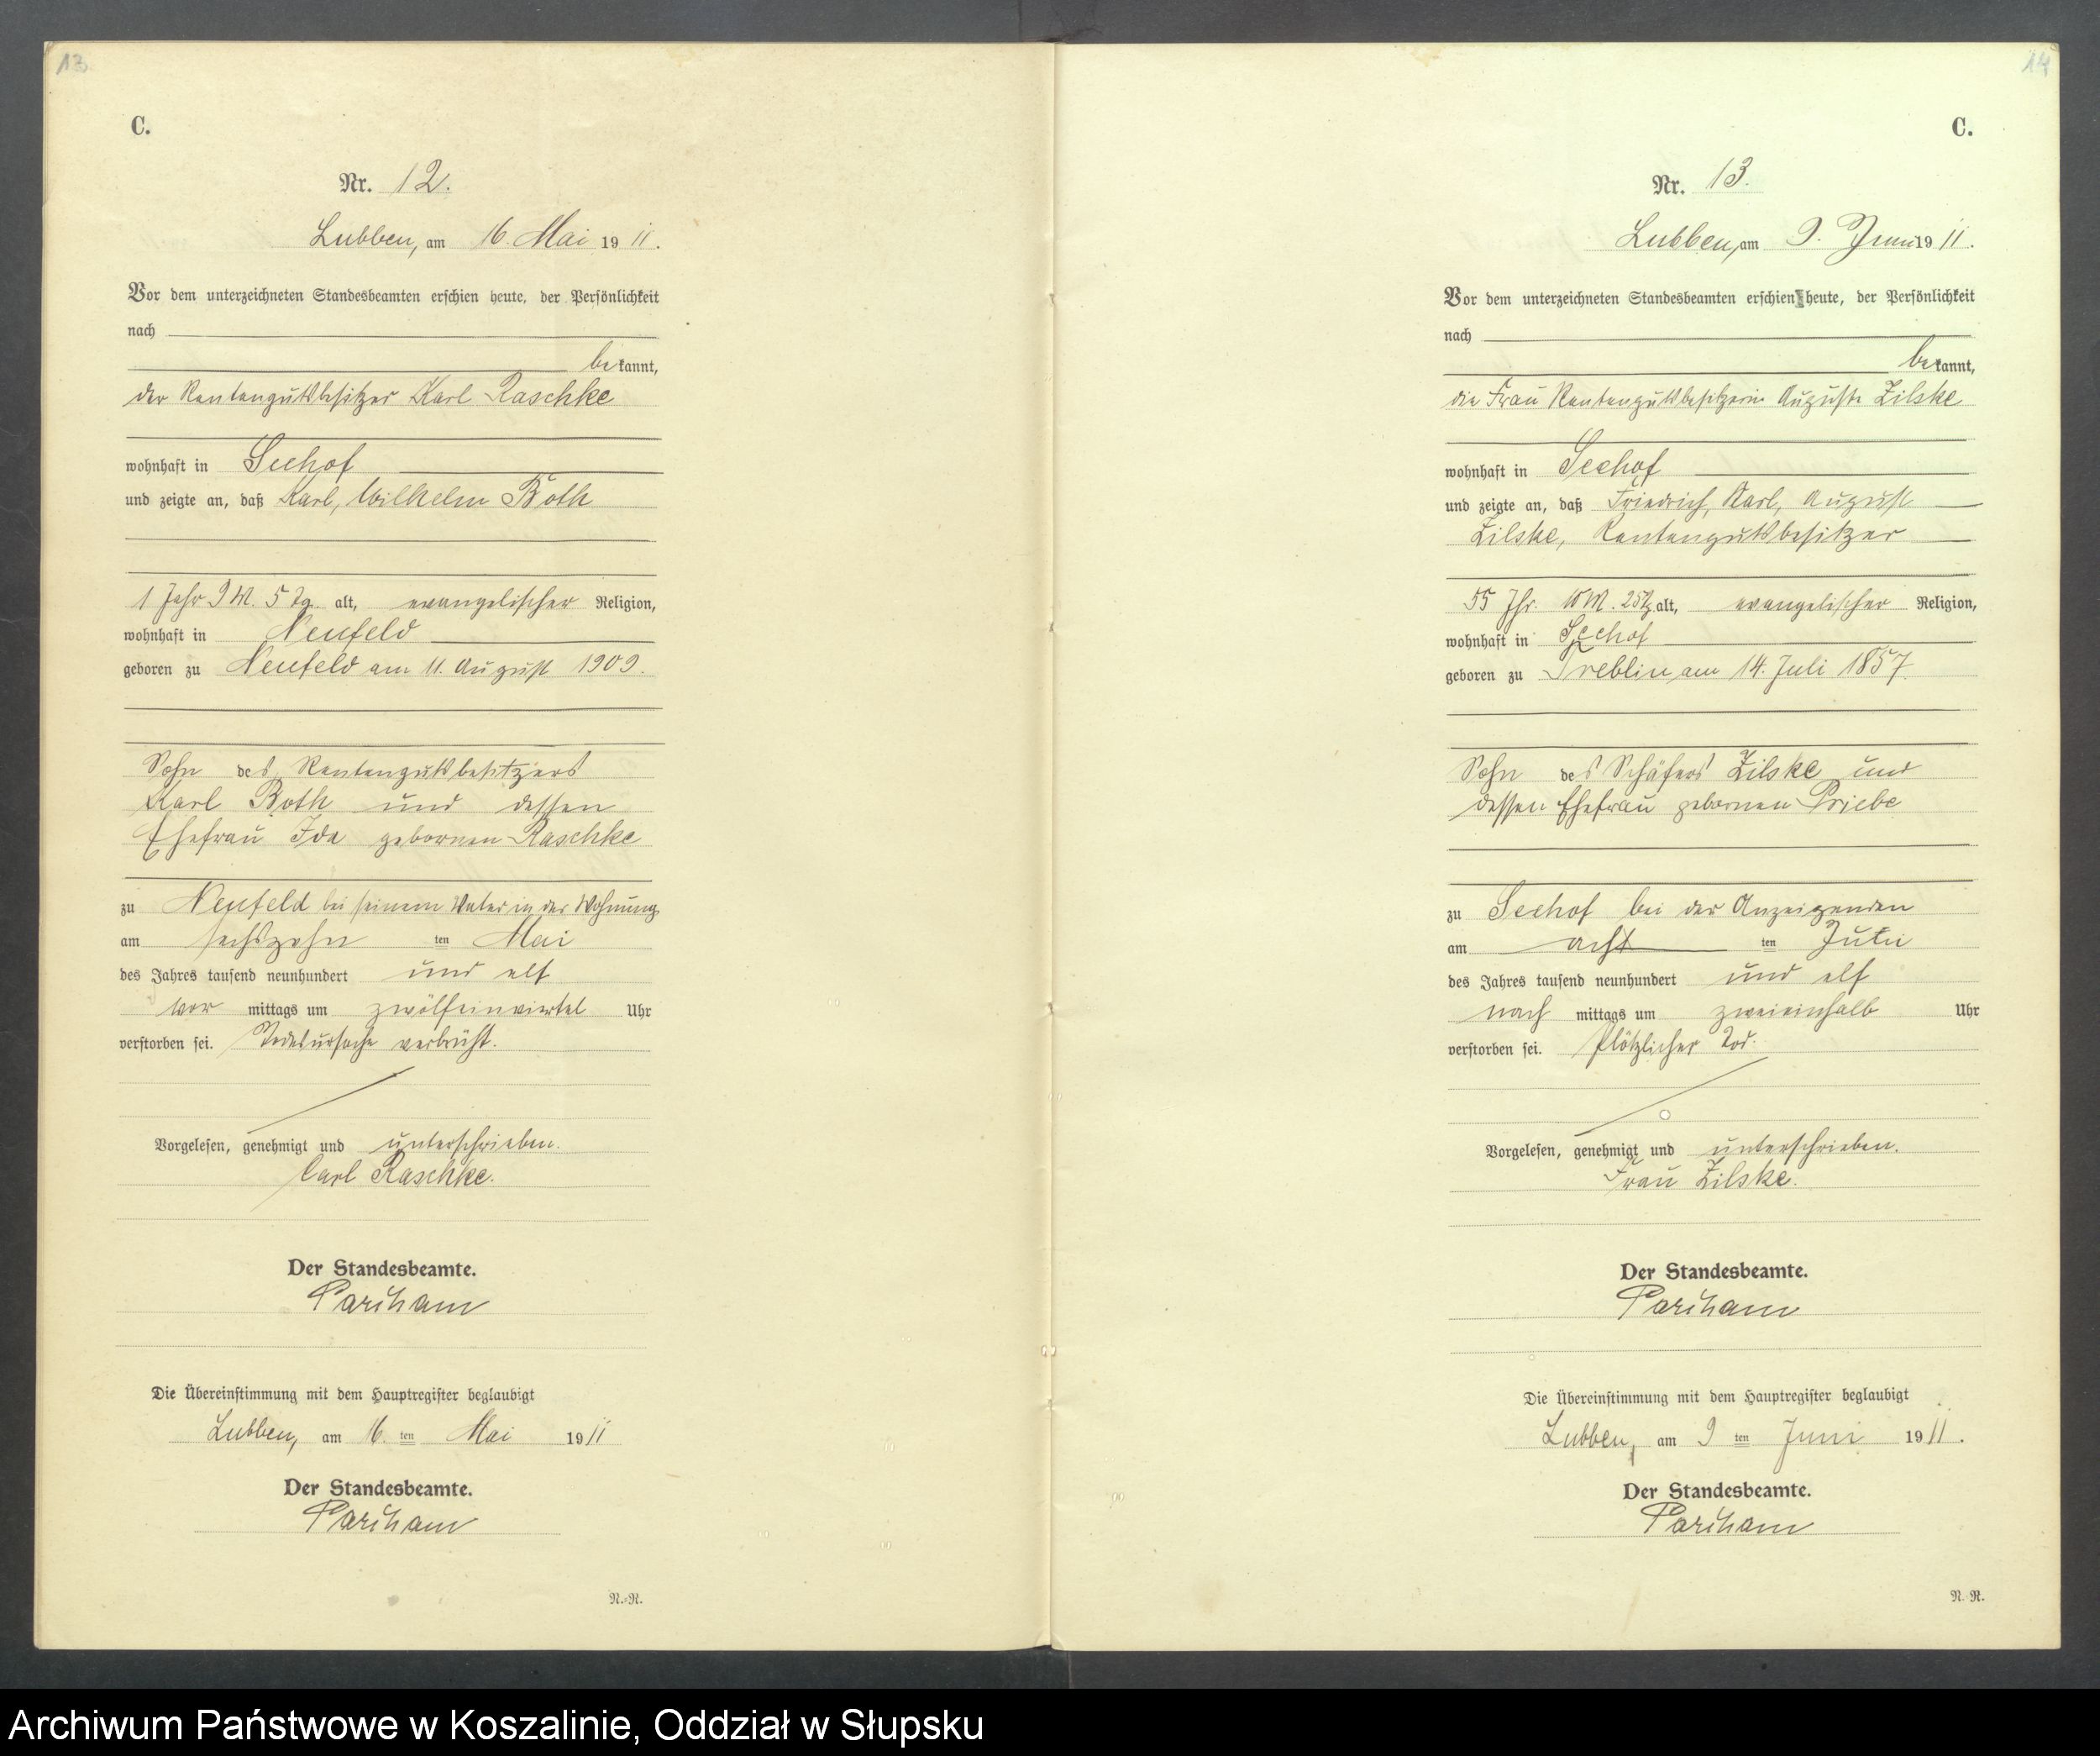 13
C.
Nr. 12.
Lubben, am 16. Mai 1911.
Vor dem unterzeichneten Standesbeamten erschien heute, der Persönlichkeit
nach
bekannt,
der Rentengutsbesitzer Karl Raschke
wohnhaft in Seehof
und zeigte an, daß Karl, Wilhelm Both
1 Jahr 9 M. 5 Tg. alt, evangelischer Religion,
wohnhaft in Neufeld
geboren zu Neufeld am 11. August 1909.
Sohn des Rentengutsbesitzers
Karl Both und dessen
Ehefrau Ida gebornen Raschke
zu Neufeld bei seinem Vater in der Wohnung
am sechszehn ten Mai
des Jahres tausend neunhundert und elf
vor mittags um zwölfeinviertel Uhr
verstorben sei. Todesursache verbrüht.
Vorgelesen, genehmigt und unterschrieben.
Carl Raschke.
Der Standesbeamte.
Die Übereinstimmung mit dem Hauptregister beglaubigt
Lubben, am 16. ten Mai 1911
Der Standesbeamte.
N.-R.
14
C.
Nr. 13.
Lubben, am 9. Juni 1911.
Vor dem unterzeichneten Standesbeamten erschien heute, der Persönlichkeit
nach
bekannt,
die Frau Rentengutsbesitzerin Auguste Zilske
wohnhaft in Seehof
und zeigte an, daß Friedrich, Karl, August
Zilske, Rentengutsbesitzer
55 Jhr. 10 M. 25 Tg alt, evangelischer Religion,
wohnhaft in Seehof
geboren zu Treblin am 14. Juli 1857.
Sohn des Schäfers Zilske und
dessen Ehefrau gebornen Priebe
zu Seehof bei der Anzeigenden
am acht ten
des Jahres tausend neunhundert und elf
nach mittags um zweieinhalb Uhr
verstorben sei. Plötzlicher Tod.
Vorgelesen, genehmigt und unterschrieben.
Frau Zilske.
Der Standesbeamte.
Die Übereinstimmung mit dem Hauptregister beglaubigt
Lubben, am 9 ten Juni 1911.
Der Standesbeamte.
N.-R.
Archiwum Państwowe w Koszalinie, Oddział w Słupsku